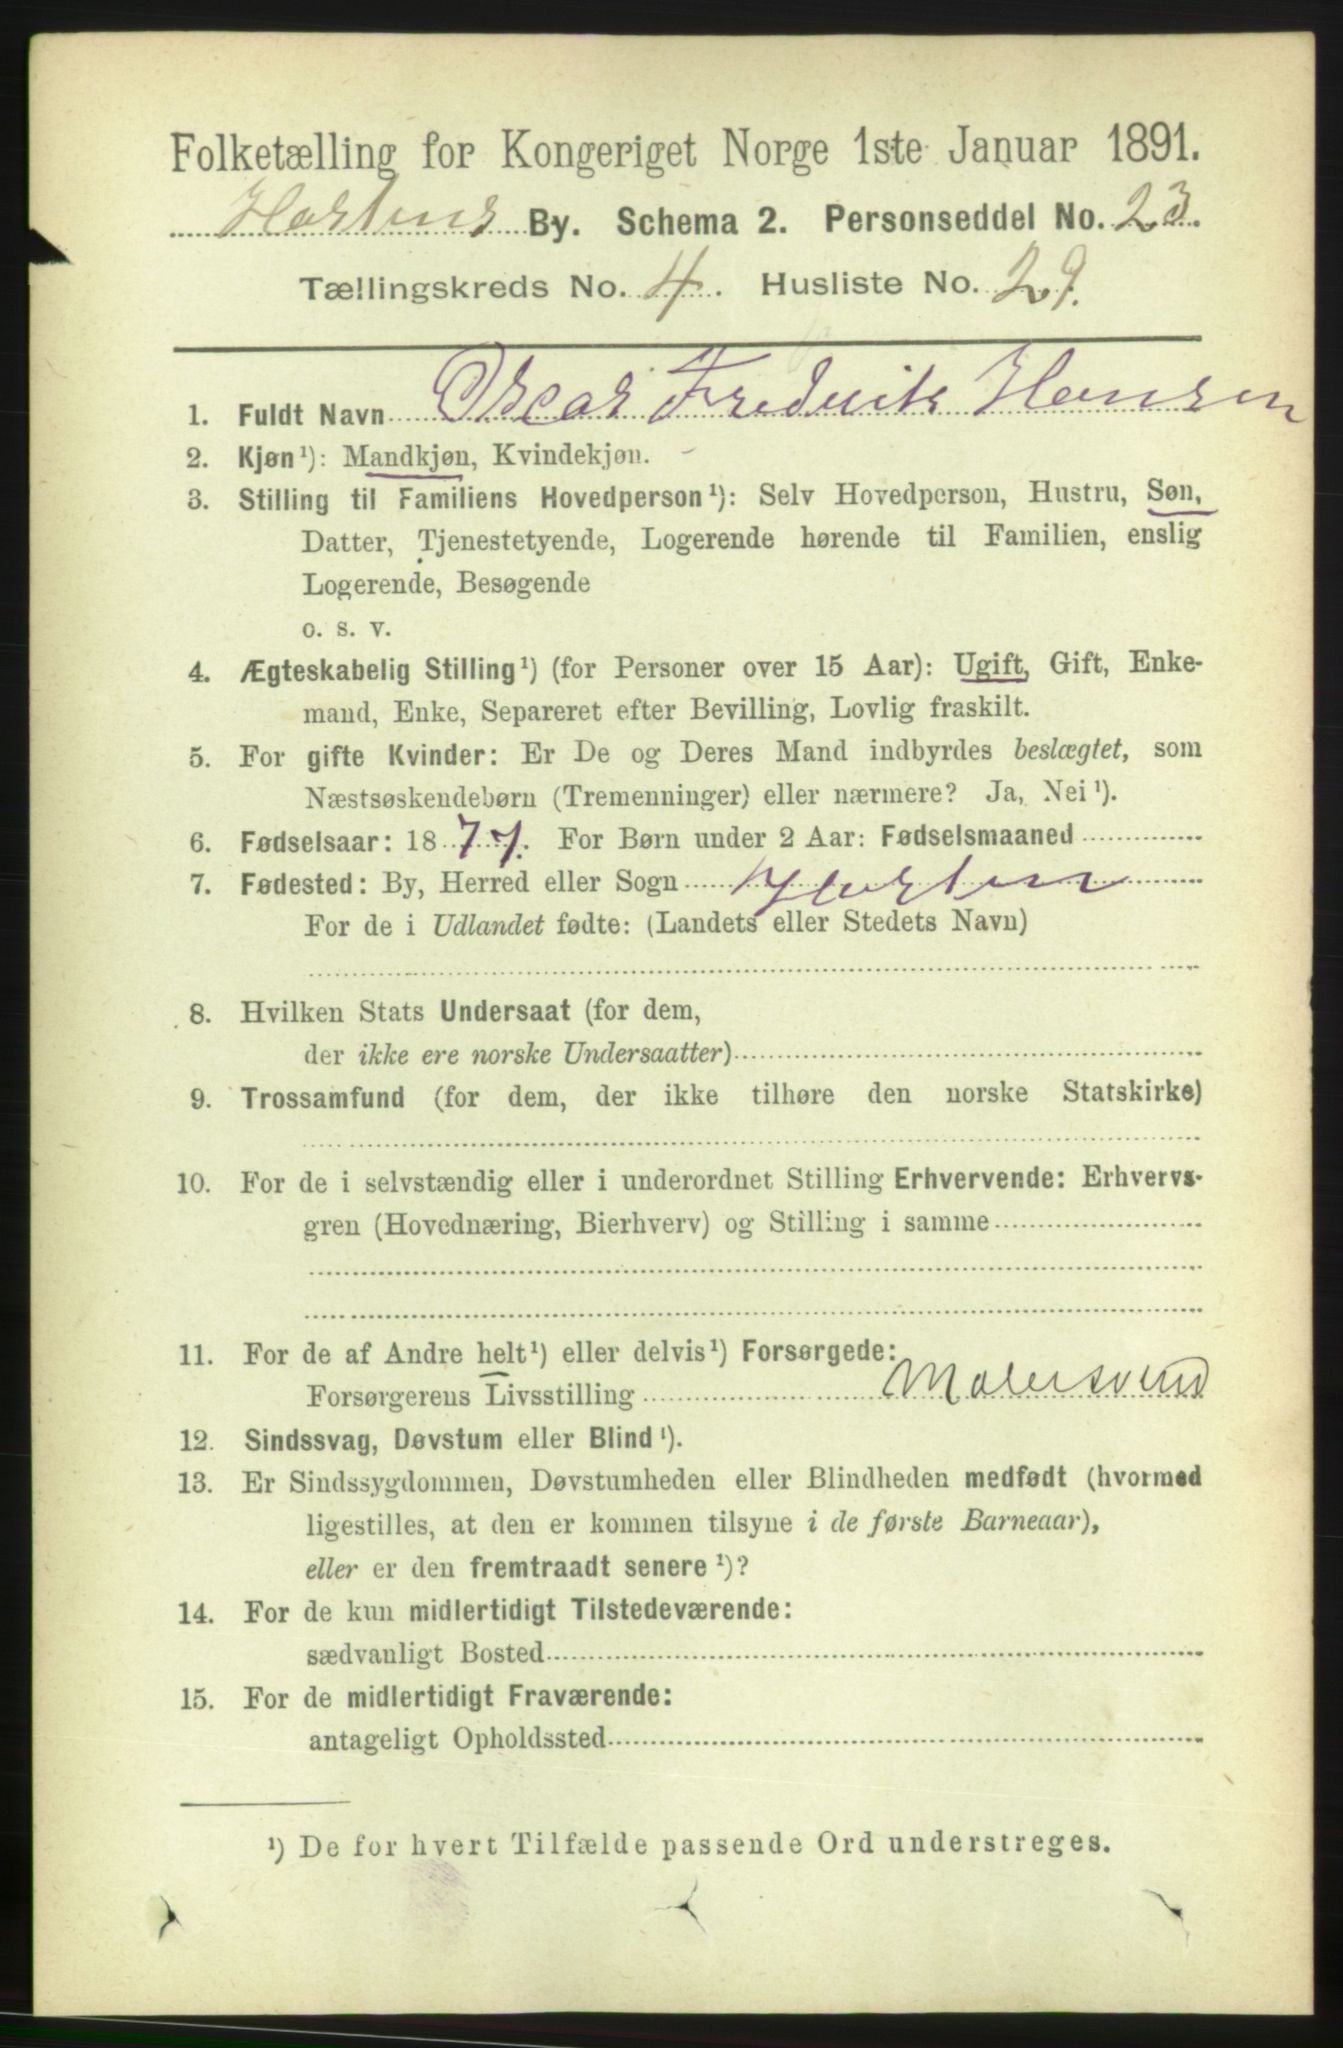 Folketælling for Kongeriget Norge 1ste Januar 1891.
Hortens By. Schema 2. Personseddel No. 23.
Tællingskreds No. 4. Husliste No. 29.
1. Fuldt Navn Oscar Fredrik Hansen
2. Kjøn¹): Mandkjøn, Kvindekjøn.
3. Stilling til Familiens Hovedperson¹): Selv Hovedperson, Hustru, Søn,
Datter, Tjenestetyende, Logerende hørende til Familien, enslig
Logerende, Besøgende
o. s. v.
4. Ægteskabelig Stilling¹) (for Personer over 15 Aar): Ugift, Gift, Enke-
mand, Enke, Separeret efter Bevilling, Lovlig fraskilt.
5. For gifte Kvinder: Er De og Deres Mand indbyrdes beslægtet, som
Næstsøskendebørn (Tremenninger) eller nærmere? Ja, Nei¹).
6. Fødselsaar: 1877. For Børn under 2 Aar: Fødselsmaaned
7. Fødested: By, Herred eller Sogn Horten
For de i Udlandet fødte: (Landets eller Stedets Navn)
8. Hvilken Stats Undersaat (for dem,
der ikke ere norske Undersaatter)
9. Trossamfund (for dem, der ikke tilhøre den norske Statskirke)
10. For de i selvstændig eller i underordnet Stilling Erhvervende: Erhvervs-
gren (Hovednæring, Bierhverv) og Stilling i samme
11. For de af Andre helt¹) eller delvis¹) Forsørgede:
Forsørgerens Livsstilling Malersvend
12. Sindssvag, Døvstum eller Blind¹).
13. Er Sindssygdommen, Døvstumheden eller Blindheden medfødt (hvormed
ligestilles, at den er kommen tilsyne i de første Barneaar),
eller er den fremtraadt senere¹)?
14. For de kun midlertidigt Tilstedeværende:
sædvanligt Bosted
15. For de midlertidigt Fraværende:
antageligt Opholdssted
¹) De for hvert Tilfælde passende Ord understreges.